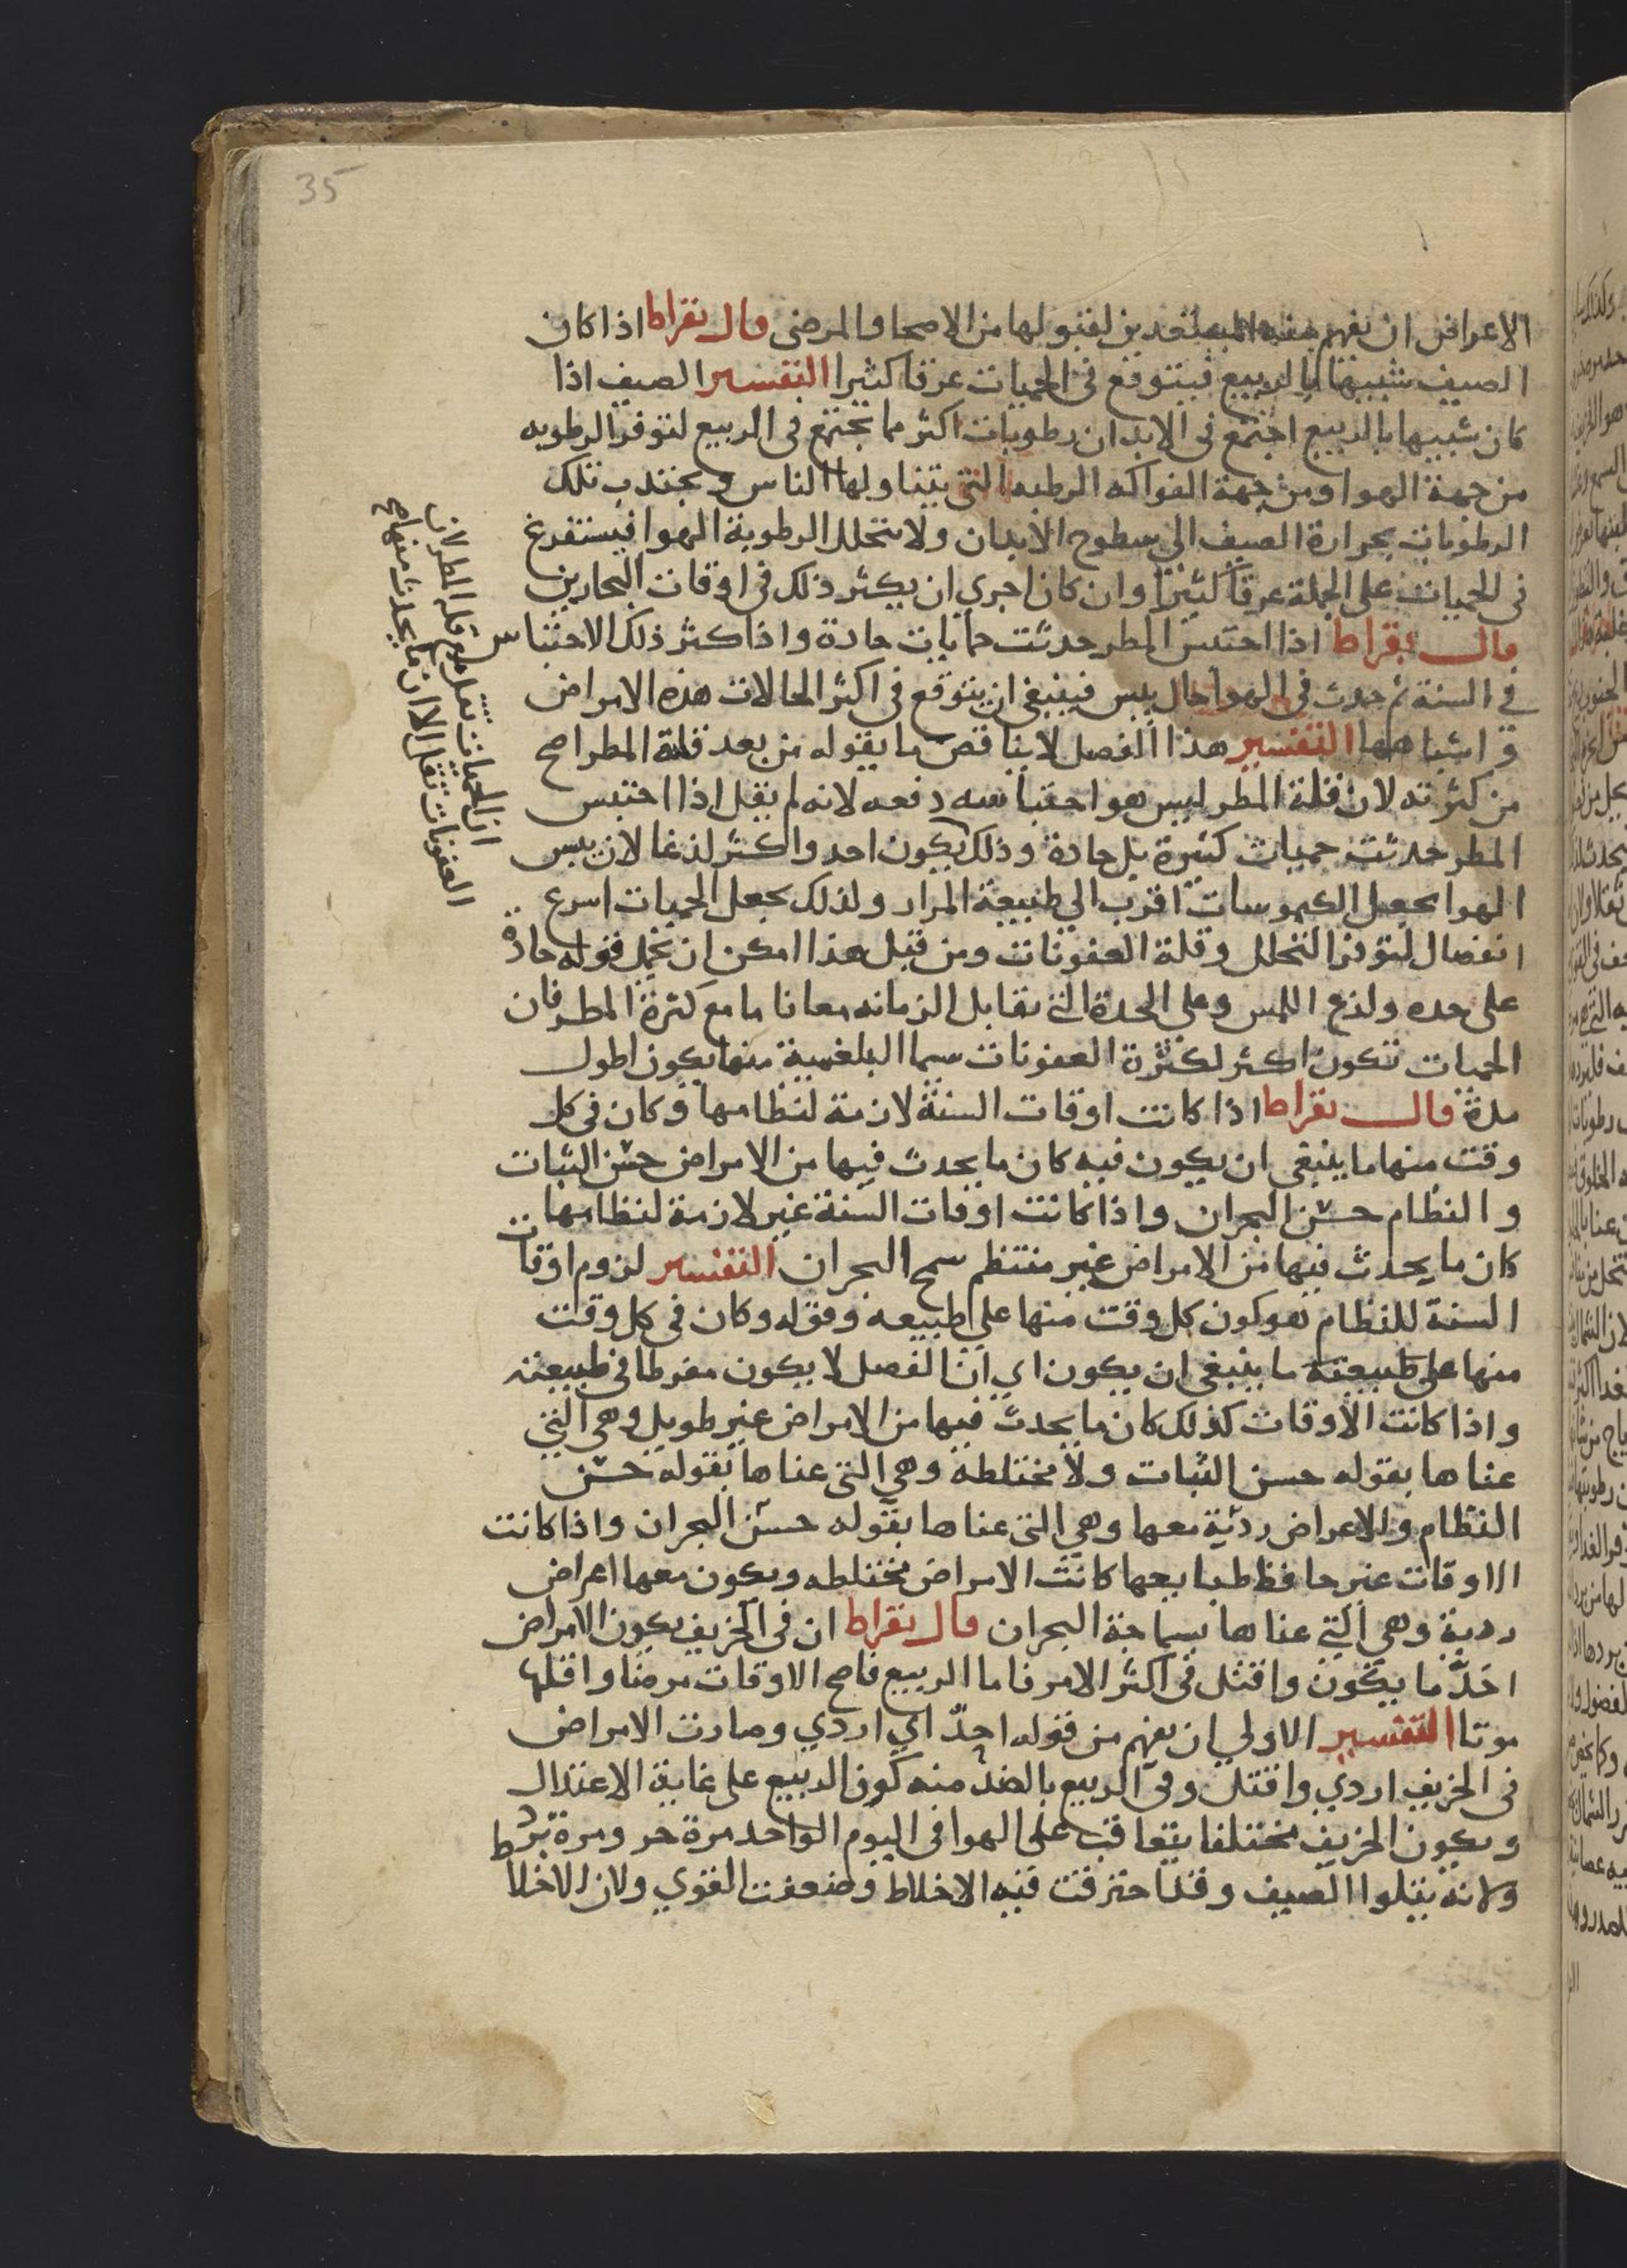 35
الاعراض ان نفهم منه المستعدين لقبولها من الاصحا والمرضى قال بقراط اذا كان
الصيف شبيها بالربيع فيتوقع في الحميات عرقا كثيرا التفسير الصيف اذا
كان شبيها بالربيع اجتمع في الابدان رطوبات اكثر مما يجتمع في الربيع لتوفر الرطوبه
من جهة الهوا ومن جهة الفواكه الرطبه التي يتناولها الناس ويجتذب تلك
الرطوبات بحرارة الصيف الي سطوح الابدان ولا يتحلل لرطوبة الهوا فيستفرغ
في الحميات على الجملة عرقا كثيرا وان كان احري ان يكثر ذلك في اوقات البحارين
قال بقراط اذا احتبس المطر حدثت حمايات حادة واذا كثر ذلك الاحتباس
في السنة ثم حدث في الهوا حال يبس فينبغي ان يتوقع في اكثر الحالات هذه الامراض
واشباهها التفسير هذا الفصل لا يناقض ما يقوله من بعد قلة المطر اصح
من كثرته لان قلة المطر ليس هو احتباسه دفعه لانه لم يقل اذا احتبس
المطر حدثت حميات كثيرة بل حادة وذلك يكون احد واكثر لذعا لان يبس
الهوا يجعل الكيموسات اقرب الي طبيعة المرار ولذلك يجعل الحميات اسرع
انفصال لتوفر التحلل وقلة العفونات ومن قبل هذا امكن ان نحمل قوله حادة
على حده ولذع اللمس وعلى الحدة التي تقابل الزمانه معا فاما مع كثرة المطر فان
الحميات تكون اكثر لكثرة العفونات سيما البلغمية منها يكون اطول
مدة قال بقراط اذا كانت اوقات السنة لازمة لنظامها وكان في كل
وقت منها ما ينبغي ان يكون فيه كان ما يحدث فيها من الامراض حسن الثبات
والنظام حسن البحران واذا كانت اوقات السنة غير لازمة لنظامها
كان ما يحدث فيها من الامراض غير منتظم سمج البحران التفسير لزوم اوقات
السنة للنظام هو كون كل وقت منها على طبيعه وقوله وكان في كل وقت
منها على طبيعته ما ينبغي ان يكون اي ان الفصل لا يكون مفرطا في طبيعته
واذا كانت الاوقات كذلك كان ما يحدث فيها من الامراض غير طويل وهي التي
عناها بقوله حسن الثبات ولا مختلطه وهي التي عناها بقوله حسن
النظام ولا اعراض رديّة معها وهي التي عناها بقوله حسن البحران واذا كانت
الاوقات غير حافظ طبايعها كانت الامراض مختلطه ويكون معها اعراض
ردية وهي التي عناها بسماجة البحران قال بقراط ان في الخريف يكون الامراض
احدّ ما يكون واقتل في اكثر الامر فاما الربيع فاصح الاوقات مرضا واقلها
موتا التفسير الاولي ان يفهم من قوله احدّ اي اردي وصارت الامراض
في الخريف اردي واقتل وفي الربيع بالضدّ منه كون الربيع على غاية الاعتدال
ويكون الخريف مختلفا يتعاقب على الهوا في اليوم الواحد مرة حر ومرة برد
ولانه يتلوا الصيف وقد احترقت فيه الاخلاط وضعفت القوي ولان الاخلاط
ان الحميات تقل مع قلة المطر لان
العفونات تقل الا ان ما يحدث منها